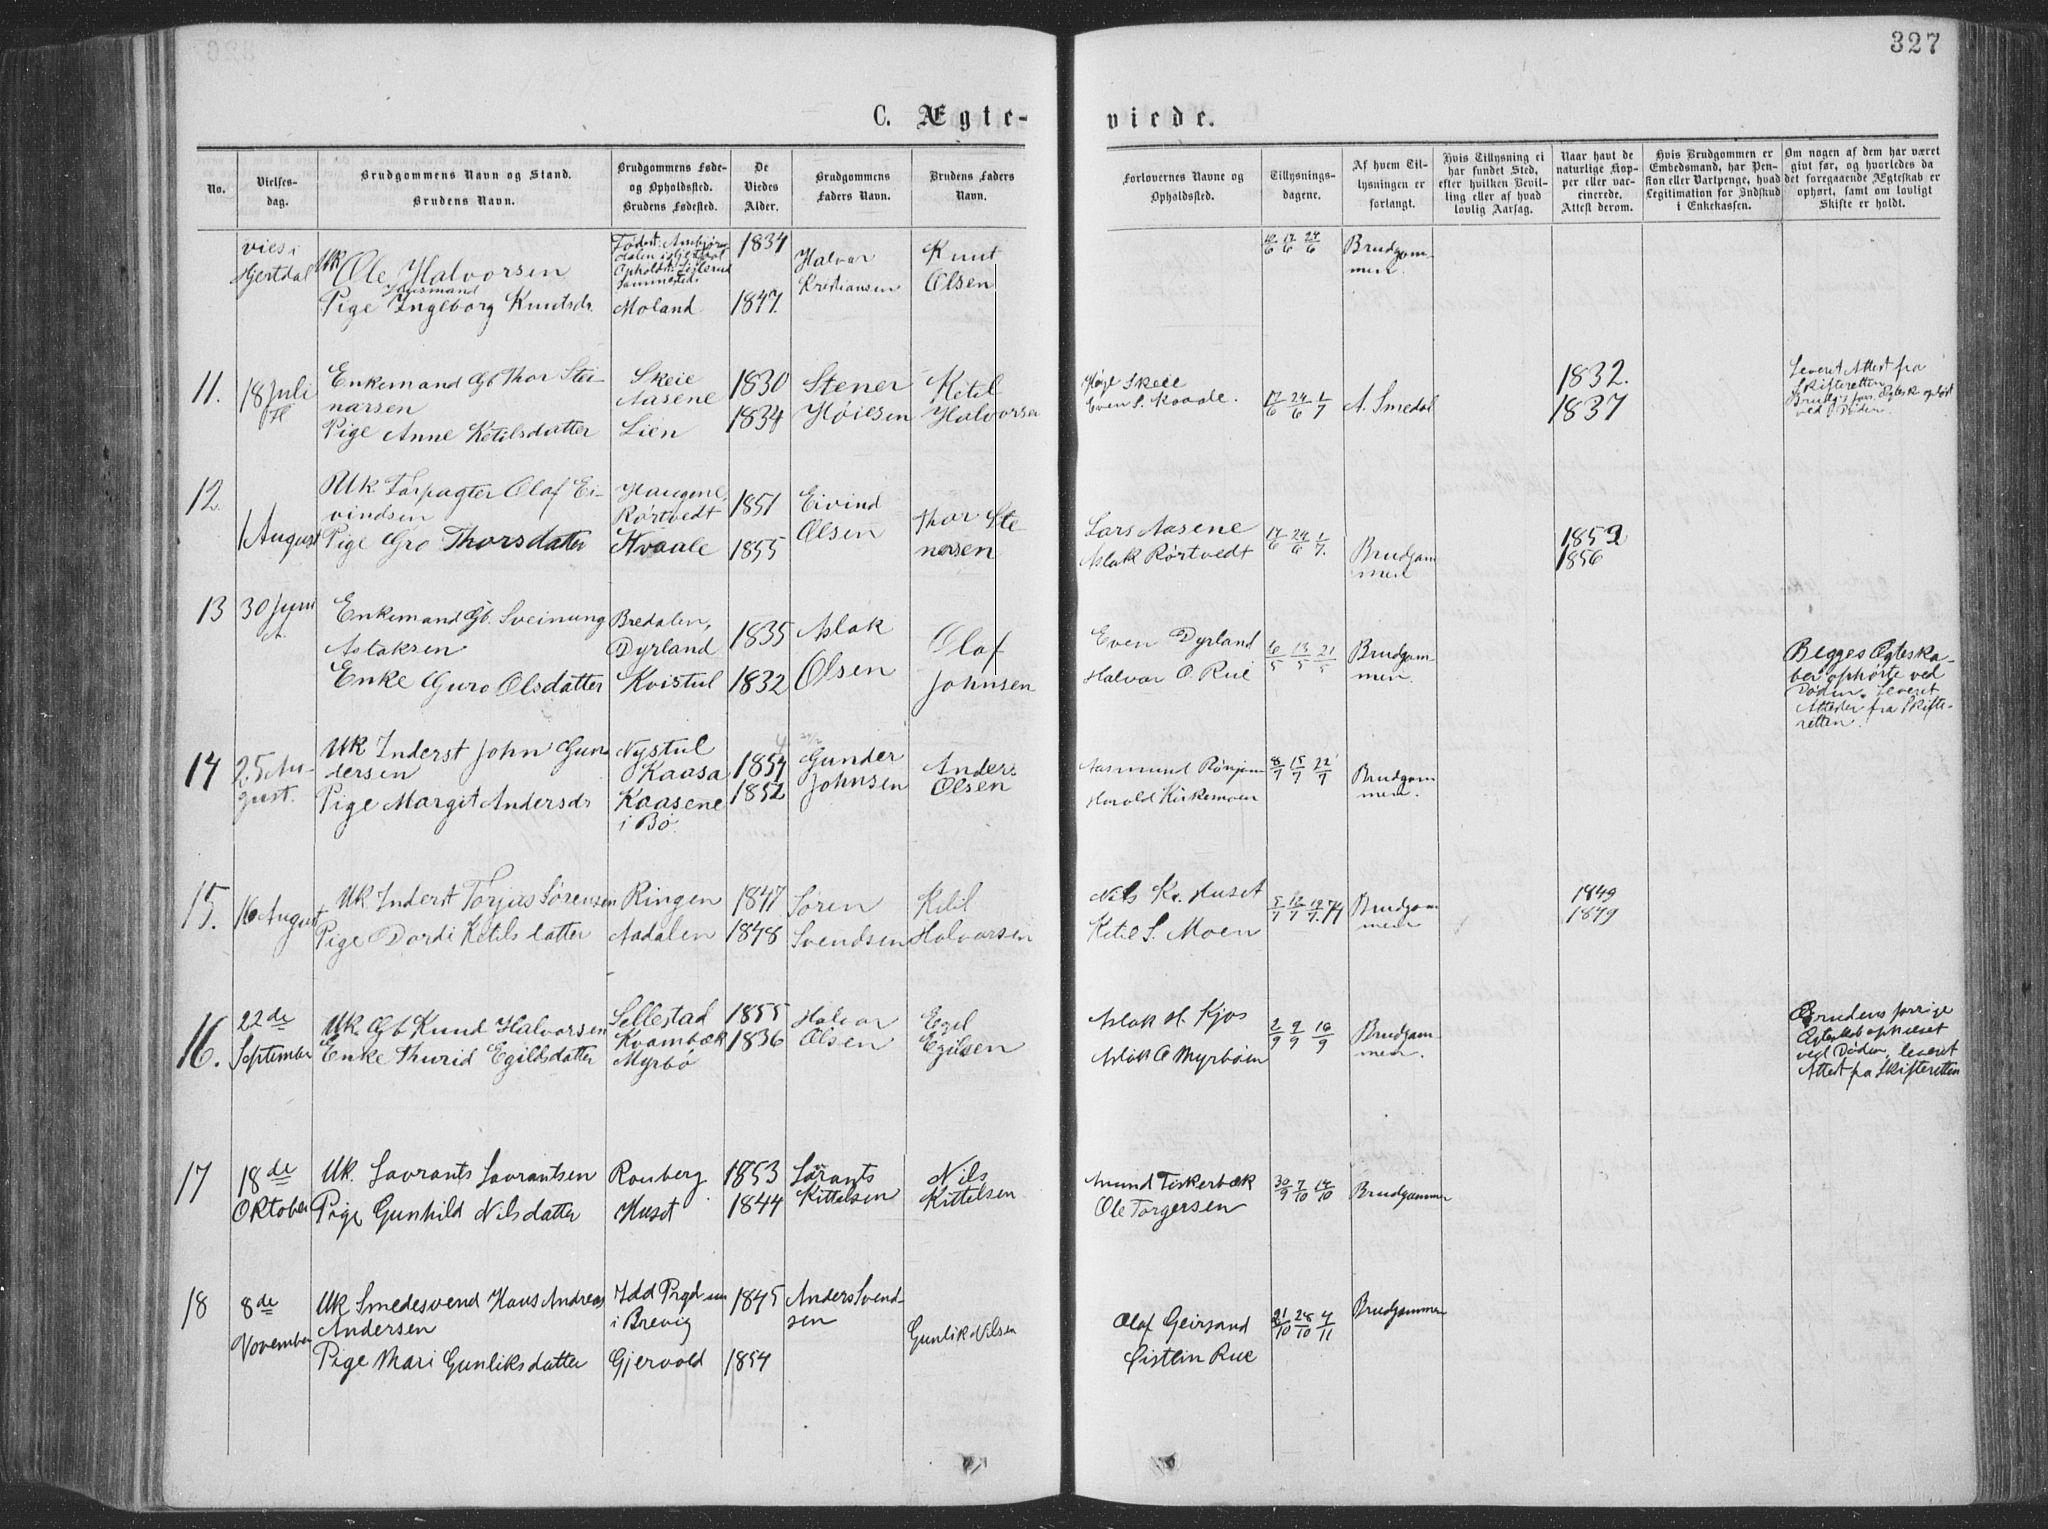 327
C. Ægte-
viede.
No.
Vielses-
dag.
Brudgommens Navn og Stand.
Brudens Navn.
Brudgommens Føde-
og Opholdssted.
Brudens Fødested.
De
Viedes
Alder.
Brudgommens
Faders Navn.
Brudens Faders
Navn.
Forlovernes Navne og
Opholdssted.
Tillysnings-
dagene.
Af hvem Til-
lysningen er
forlangt.
Hvis Tillysning ei
har fundet Sted,
efter hvilken Bevil-
ling eller af hvad
lovlig Aarsag.
Naar havt de
naturlige Kop-
per eller vac-
cinerede.
Attest derom.
Hvis Brudgommen er
Embedsmand, har Pen-
sion eller Vartpenge, hvad
Legitimation for Indskud
i Enkekassen.
Om nogen af dem har været
givt før, og hvorledes da
det foregaaende Ægteskab er
ophørt, samt om lovligt
Skifte er holdt.
vies i
Hjertdal
Uk
Ole Halvorsen
Husmand
Pige Ingeborg Knutsdr.
Moland
1834
1847.
Halvor
Kristiansen
Knut
Olsen
12/6 17/6 24/6
Brudgom-
men.
11.
18 Juli
Enkemand Gb Thor Stei-
narsen
Pige Anne Ketilsdatter
Skeie
Aasene
Lien
1830
1834
Stener
Høiesen
Ketil
Halvorsen
Høge Skeie
Even S. Kaade.
17/6 24/6 1/7
A. Smedal
1832.
1837
Leveret Attest fra
Skifteretten
Brudg. forr. Ægtesk ophørt
ved Døden.
12.
1 August
Uk Forpagter Olaf Ei-
vindsen
Pige Gro Thorsdatter
Haugene,
Rørtvedt
Kvaale
1851
1855
Eivind
Olsen
Thor Ste
nersen
Lars Aasene
Aslak Rørtvedt
17/6 24/6 1/7.
Brudgom
men
1852
1856
13
30 Juni
Enkemand Gb. Sveinung
Aslaksen
Enke Guro Olsdatter
Bredalen,
Dyrland
Kvistul
1835
1832
Aslak
Olsen
Olaf
Johnsen
Even Dyrland
Halvor O. Rue
6/5 13/5 21/5
Brudgom-
men.
Begges Ægteska-
ber ophørte ved
Døden. Leveret
Attester fra Skifte-
retten.
14
25 Au-
gust.
Uk Inderst John Gun
dersen
Pige Margit Andersdr
Nystul
Kaasa
Kaasene
i Bø.
1854
1852
Gunder
Johnsen
Anders
Olsen
Aasmund Rønjom
Harald Kirkemoen
8/7 15/7 22/7
Brudgom
men.
15.
16 August
Uk Inderst Torjus Sørensen
Pige Dordi Ketilsdatter
Ringen
Aadalen
1847
1848
Søren
Svendsen
Ketil
Halvorsen
Nils Kr. Huset
Ketil S. Moen
Brudgom
men
1849
1849
16.
22de
September
Uk. Gb Knud Halvorsen
Enke Thurid Egildsdatter
Sellestad
Kvambæk
Myrbø
1855
1836
Halvor
Olsen
Egil
Egilsen
Aslak H. Kjos
Aslak O Myrbøen
2/9 9/9 16/9
Brudgom
men.
Brudens forrige
Ægteskab ophævet
ved Døden, leveret
Attest fra Skifteretten
17
18de
Oktober
Uk. Lavrants Lavrantsen
Pige Gunhild Nilsdatter
Rouberg
Huset
1853
1844
Lørants
Kittelsen
Nils
Kittelsen
Amund Fiskerbæk
Ole Torgersen
30/9 7/10 14/10
Brudgommen
18
8de
November
Uk Smedesvend Hans Andreas
Andersen
Pige Mari Gunliksdatter
Idd Prgd un
i Brevig
Gjervold
1845
1854
Anders Svend-
sen
Gunlik Nilsen
Olaf Geirsand
Øistein Rue
21/10 28/10 4/11
Brudgommen